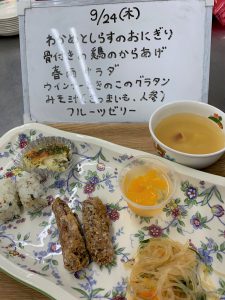 9/24(木)
わかめとしらすのおにぎり
骨付きの鶏のからあげ
春雨サラダ
ウインナーときのこのグラタン
みそ汁(さつまいも、人参)
フルーツゼリー